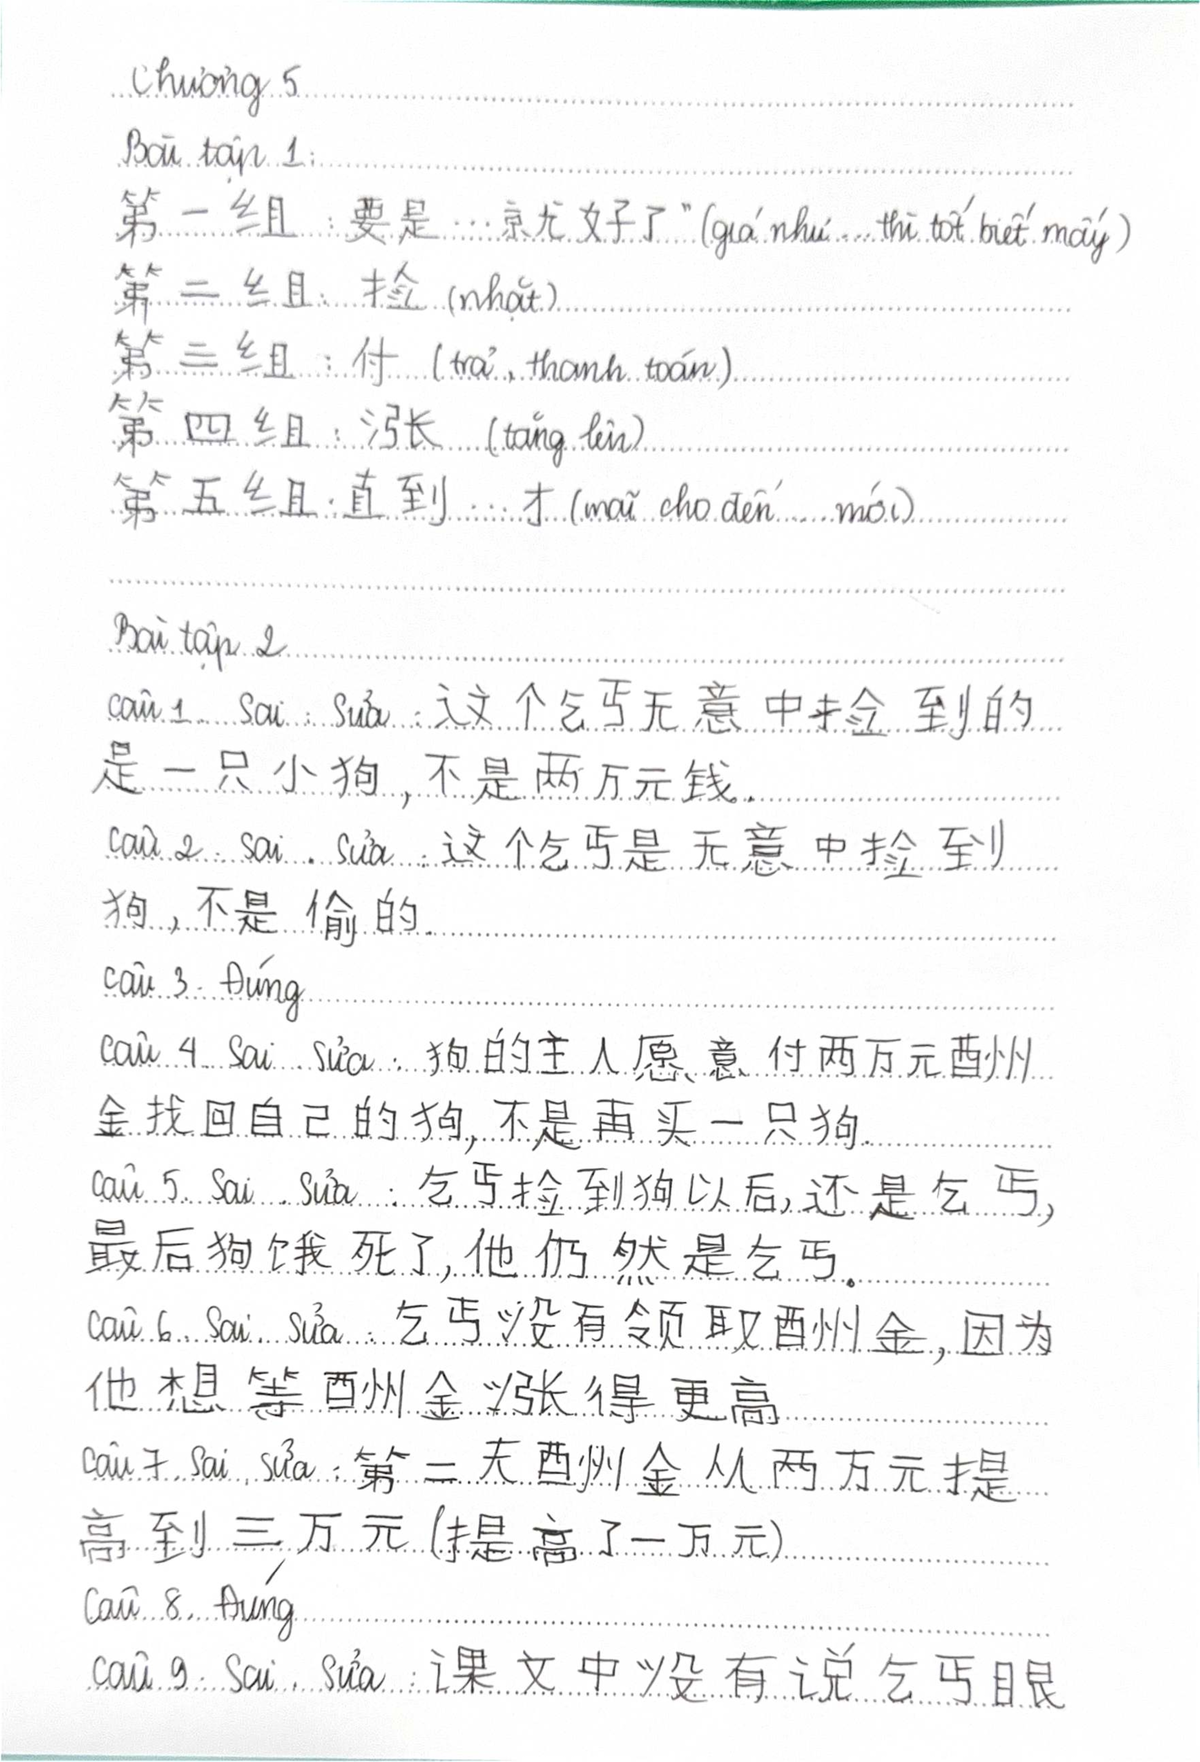 Chương 5
Bài tập 1:
第一组：要是…就好了"(giá như...thì tốt biết mấy)
第二组：捡 (nhặt)
第三组：付 (trả, thanh toán)
第四组：涨 (tăng lên)
第五组：直到…才 (mãi cho đến...mới)
Bài tập 2
Câu 1. Sai. Sửa: 这个乞丐无意中捡到的
是一只小狗,不是两万元钱.
Câu 2. Sai. Sửa: 这个乞丐是无意中捡到
狗,不是偷的.
Câu 3. Đúng
Câu 4. Sai. Sửa: 狗的主人愿意付两万元酬
金找回自己的狗,不是再买一只狗.
Câu 5. Sai. Sửa: 乞丐捡到狗以后,还是乞丐,
最后狗饿死了,他仍然是乞丐。
Câu 6. Sai. Sửa: 乞丐没有领取酬金,因为
他想等酬金涨得更高
Câu 7. Sai. Sửa: 第二天酬金从两万元提
高到三万元(提高了一万元)
Câu 8. Đúng
Câu 9. Sai. Sửa: 课文中没有说乞丐眼